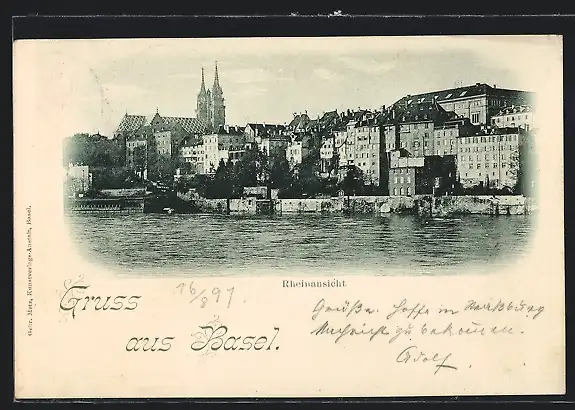 Rheinansicht
Gebr. Metz, Kunstverlags-Anstalt, Basel.
Gruss
aus Basel.
16/8 97
Grüße. Hoffe in Straßburg
Nachricht zu bekommen.
Adolf.